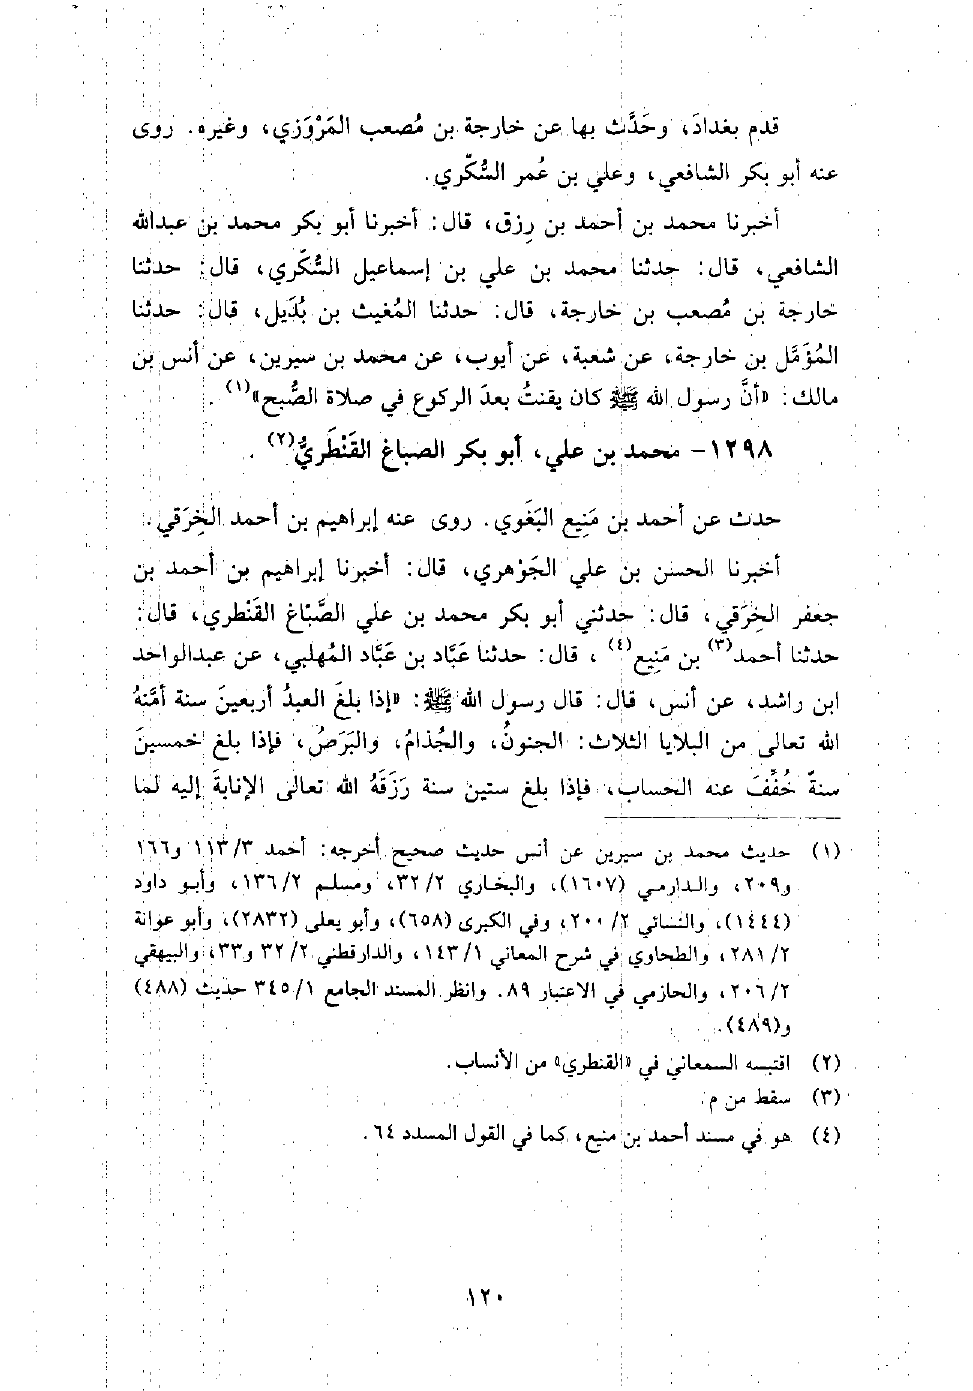 قدم بغدادَ، وحَدَّث بها عن خارجة بن مُصعب المَرْوَزي، وغيره. روى
عنه أبو بكر الشافعي، وعلي بن عُمر السُّكَّري.
أخبرنا محمد بن أحمد بن رِزق، قال: أخبرنا أبو بكر محمد بن عبدالله
الشافعي، قال: حدثنا محمد بن علي بن إسماعيل السُّكَّري، قال: حدثنا
خارجة بن مُصعب بن خارجة، قال: حدثنا المُغيث بن بُدَيل، قال: حدثنا
المُؤَمَّل بن خارجة، عن شعبة، عن أيوب، عن محمد بن سيرين، عن أنس بن
مالك: «أنَّ رسول الله ﷺ كان يقنتُ بعدَ الركوع في صلاة الصُّبح»(١).
١٢٩٨- محمد بن علي، أبو بكر الصباغ القَنْطَريُّ(٢).
حدث عن أحمد بن مَنِيع البَغَوي. روى عنه إبراهيم بن أحمد الخِرَقي.
أخبرنا الحسن بن علي الجَوْهري، قال: أخبرنا إبراهيم بن أحمد بن
جعفر الخِرَقي، قال: حدثني أبو بكر محمد بن علي الصَّبَّاغ القَنْطري، قال:
حدثنا أحمد(٣) بن مَنِيع(٤)، قال: حدثنا عَبَّاد بن عَبَّاد المُهلبي، عن عبدالواحد
ابن راشد، عن أنس، قال: قال رسول الله ﷺ: «إذا بلغَ العبدُ أربعينَ سنة أمَّنهُ
الله تعالى من البلايا الثلاث: الجنونُ، والجُذامُ، والبَرَصُ، فإذا بلغ خمسينَ
سنةً خُفِّفَ عنه الحساب، فإذا بلغ ستين سنة رَزَقَهُ الله تعالى الإنابةَ إليه لما
(١) حديث محمد بن سيرين عن أنس حديث صحيح أخرجه: أحمد ٣/ ١١٣ و١٦٦
و٢٠٩، والدارمي (١٦٠٧)، والبخاري ٢/ ٣٢، ومسلم ٢/ ١٣٦، وأبو داود
(١٤٤٤)، والنسائي ٢/ ٢٠٠، وفي الكبرى (٦٥٨)، وأبو يعلى (٢٨٣٢)، وأبو عوانة
٢/ ٢٨١، والطحاوي في شرح المعاني ١/ ١٤٣، والدارقطني ٢/ ٣٢ و٣٣، والبيهقي
٢/ ٢٠٦، والحازمي في الاعتبار ٨٩. وانظر المسند الجامع ١/ ٣٤٥ حديث (٤٨٨)
و(٤٨٩).
(٢) اقتبسه السمعاني في «القنطري» من الأنساب.
(٣) سقط من م.
(٤) هو في مسند أحمد بن منيع، كما في القول المسدد ٦٤.
١٢٠